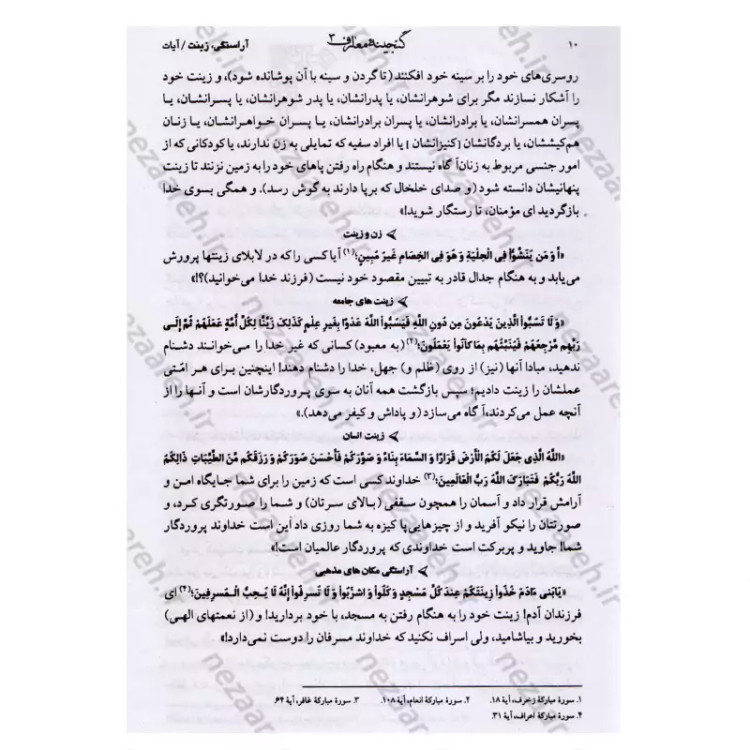 ۱۰ گنجینه معارف ۳ آراستگی، زینت / آیات
روسری‌های خود را بر سینه خود افکنند (تا گردن و سینه با آن پوشانده شود)، و زینت خود
را آشکار نسازند مگر برای شوهرانشان، یا پدرانشان، یا پدر شوهرانشان، یا پسرانشان، یا
پسران همسرانشان، یا برادرانشان، یا پسران برادرانشان، یا پسران خواهرانشان، یا زنان
هم‌کیششان، یا بردگانشان [کنیزانشان] یا افراد سفیه که تمایلی به زن ندارند، یا کودکانی که از
امور جنسی مربوط به زنان آگاه نیستند و هنگام راه رفتن پاهای خود را به زمین نزنند تا زینت
پنهانیشان دانسته شود (و صدای خلخال که برپا دارند به گوش رسد). و همگی بسوی خدا
بازگردید ای مؤمنان، تا رستگار شوید!»
زن و زینت
«أَ وَ مَن يُنَشَّؤُا فِي الْحِلْيَةِ وَ هُوَ فِي الْخِصَامِ غَيْرُ مُبِينٍ؛(۱) آیا کسی را که در لابلای زینتها پرورش
می‌یابد و به هنگام جدال قادر به تبیین مقصود خود نیست (فرزند خدا می‌خوانید)؟!»
زینت های جامعه
«وَ لَا تَسُبُّواْ الَّذِينَ يَدْعُونَ مِن دُونِ اللَّهِ فَيَسُبُّواْ اللَّهَ عَدْوًا بِغَيرِ عِلْمٍ كَذَلِكَ زَيَّنَّا لِكُلِّ أُمَّةٍ عَمَلَهُمْ ثُمَّ إِلَى
رَبِّهِم مَّرْجِعُهُمْ فَيُنَبِّئُهُم بِمَا كَانُواْ يَعْمَلُونَ؛(۲) (به معبود) کسانی که غیر خدا را می‌خوانند دشنام
ندهید، مبادا آنها (نیز) از روی (ظلم و) جهل، خدا را دشنام دهند! اینچنین برای هر امّتی
عملشان را زینت دادیم؛ سپس بازگشت همه آنان به سوی پروردگارشان است و آنها را از
آنچه عمل می‌کردند، آگاه می‌سازد (و پاداش و کیفر می‌دهد).»
زینت انسان
«اللَّهُ الَّذِي جَعَلَ لَكُمُ الْأَرْضَ قَرَارًا وَ السَّمَاءَ بِنَاءً وَ صَوَّرَكُمْ فَأَحْسَنَ صُوَرَكُمْ وَ رَزَقَكُم مِّنَ الطَّيِّبَاتِ ذَالِكُمُ
اللَّهُ رَبُّكُمْ فَتَبَارَكَ اللَّهُ رَبُّ الْعَالَمِينَ؛(۳) خداوند کسی است که زمین را برای شما جایگاه امن و
آرامش قرار داد و آسمان را همچون سقفی (بالای سرتان) و شما را صورتگری کرد، و
صورتتان را نیکو آفرید و از چیزهایی پاکیزه به شما روزی داد این است خداوند پروردگار
شما! جاوید و پربرکت است خداوندی که پروردگار عالمیان است!»
آراستگی مکان های مذهبی
«يَابَنِى ءَادَمَ خُذُواْ زِينَتَكُمْ عِندَ كُلِّ مَسْجِدٍ وَ كُلُواْ وَ اشْرَبُواْ وَ لَا تُسْرِفُواْ إِنَّهُ لَا يُحِبُّ الْمُسْرِفِينَ؛(۴) ای
فرزندان آدم! زینت خود را به هنگام رفتن به مسجد، با خود بردارید! و (از نعمتهای الهی)
بخورید و بیاشامید، ولی اسراف نکنید که خداوند مسرفان را دوست نمی‌دارد!»
۱. سورهٔ مبارکهٔ زخرف، آیهٔ ۱۸. ۲. سورهٔ مبارکهٔ انعام، آیهٔ ۱۰۸. ۳. سورهٔ مبارکهٔ غافر، آیهٔ ۶۴.
۴. سورهٔ مبارکهٔ اعراف، آیهٔ ۳۱.
nezaareh.ir